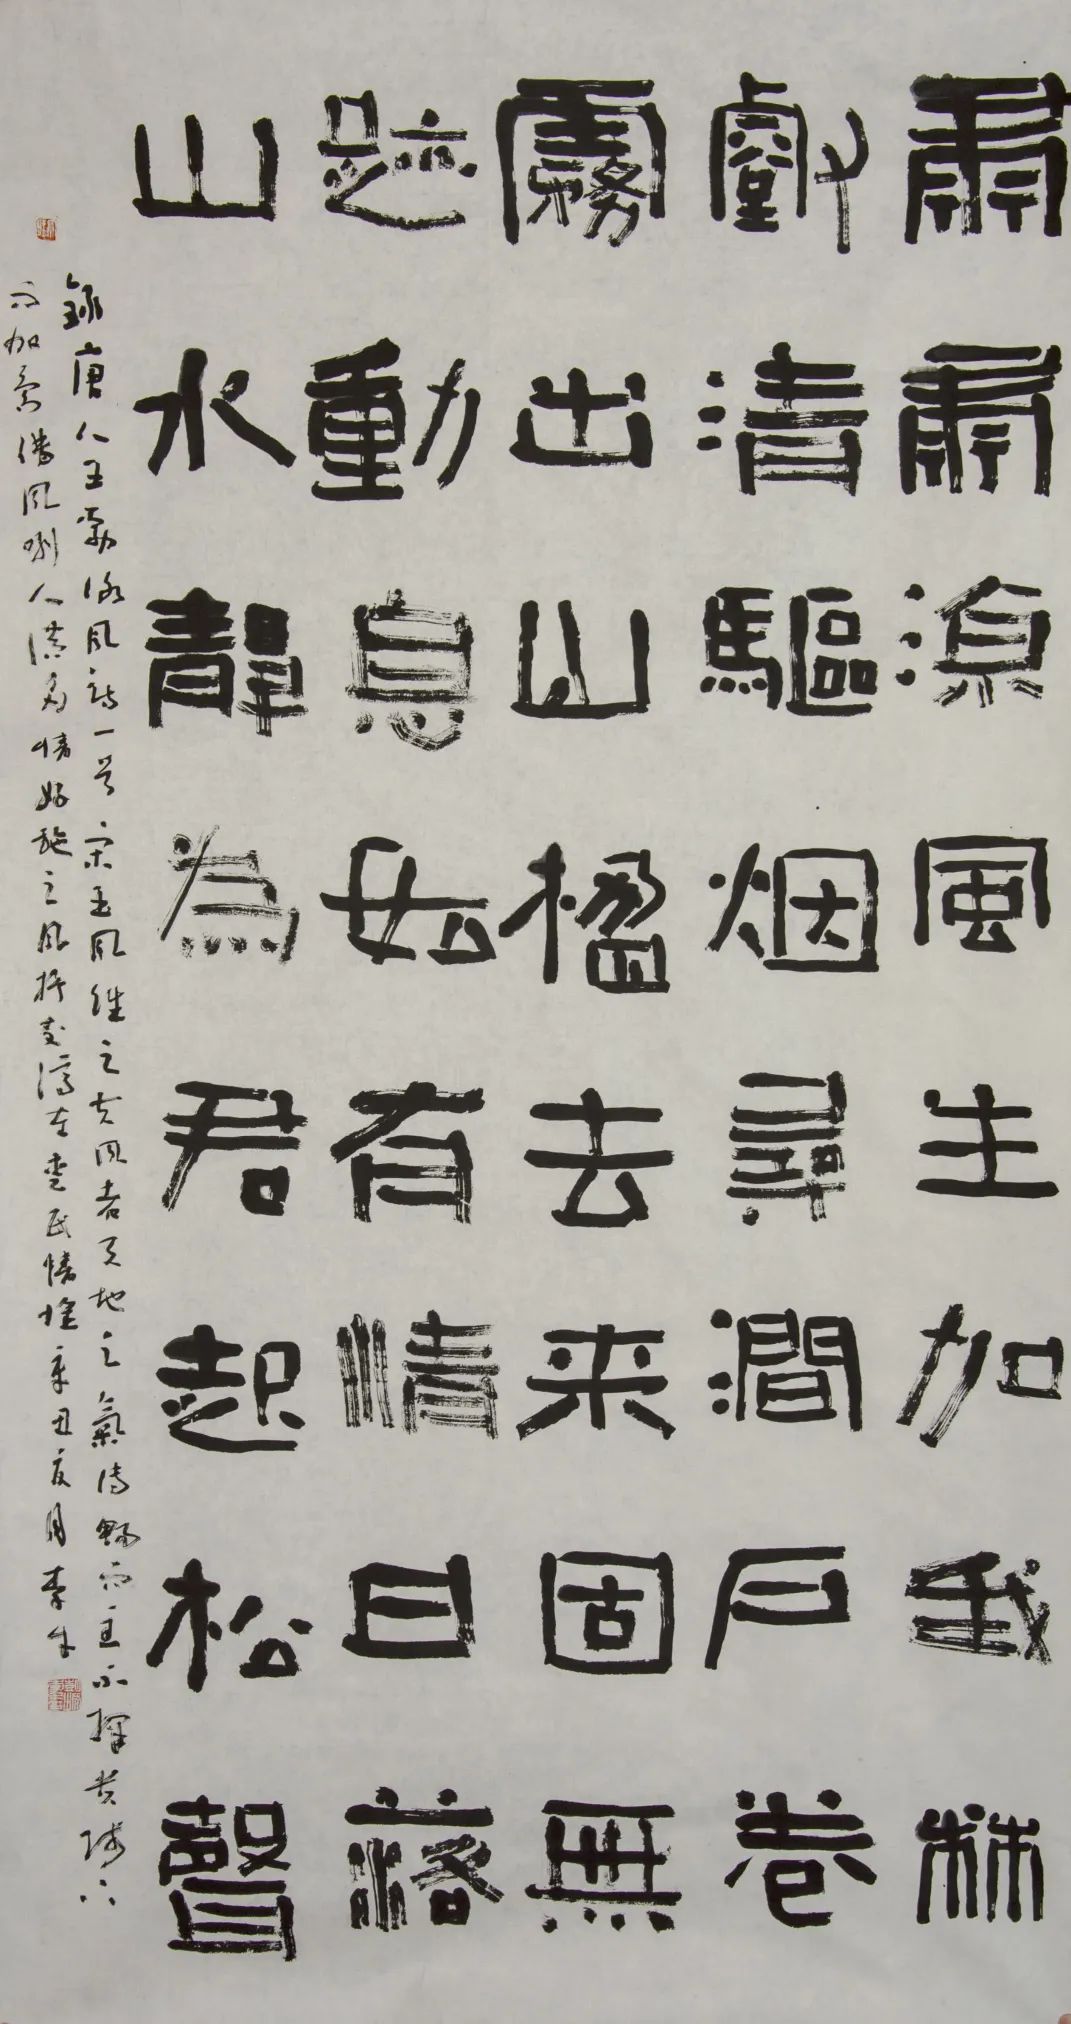 肅肅涼風生加我林
壑清驅烟尋澗戶卷
霧出山楹去来固無
跡動息如有情日落
山水靜為君起松聲
錄唐人王勃詠風詩一首宋玉風賦云夫風者天地之氣溥暢而至不擇貴賤高下
而加焉借風喻人情好施之風辛丑夏月李